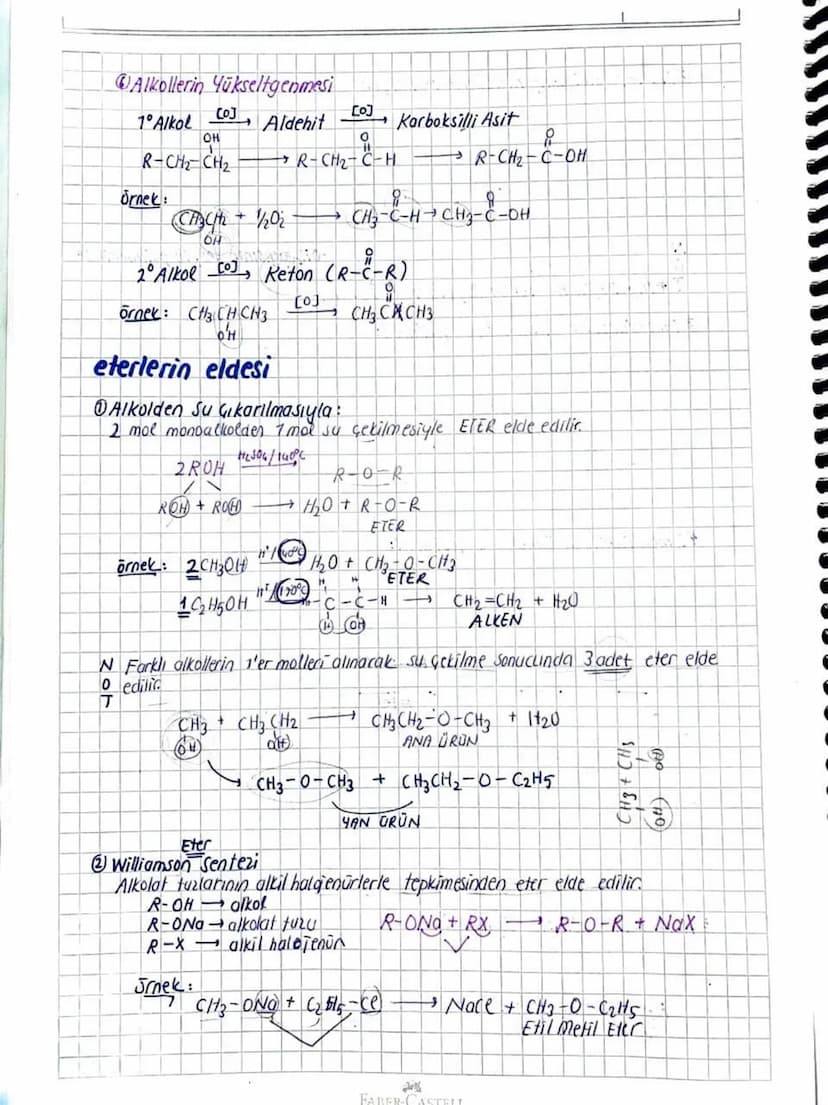 ⑥ Alkollerin Yükseltgenmesi
1° Alkol [O]→ Aldehit [O]→ Karboksilli Asit
OH O O
R-CH2-CH2 → R-CH2-C-H → R-CH2-C-OH
Örnek:
O O
CH3CH2 + 1/2O2 → CH3-C-H → CH3-C-OH
OH
2° Alkol [O]→ Keton (R-C-R)
O
Örnek: CH3CHCH3 [O]→ CH3CCH3
OH O
eterlerin eldesi
① Alkolden Su Çıkarılmasıyla:
2 mol monoalkolden 1 mol su çekilmesiyle ETER elde edilir.
2ROH H2SO4/140°C→ R-O-R
ROH + ROH → H2O + R-O-R
ETER
örnek: 2CH3OH H+/140°C H2O + CH3-O-CH3
ETER
1C2H5OH H+/170°C -C-C-H → CH2=CH2 + H2O
H OH ALKEN
NOT Farklı alkollerin 1'er molleri alınarak su çekilme sonucunda 3 adet eter elde
edilir.
CH3 + CH3CH2 → CH3CH2-O-CH3 + H2O
OH OH ANA ÜRÜN
CH3-O-CH3 + CH3CH2-O-C2H5
YAN ÜRÜN
CH3 + CH3
OH OH
Eter
② Williamson Sentezi
Alkolat tuzlarının alkil halojenürlerle tepkimesinden eter elde edilir.
R-OH → alkol
R-ONa → alkolat tuzu R-ONa + RX → R-O-R + NaX
R-X → alkil halojenür
Örnek:
CH3-ONa + C2H5-Cl → NaCl + CH3-O-C2H5
Etil Metil Eter
FABER-CASTELL